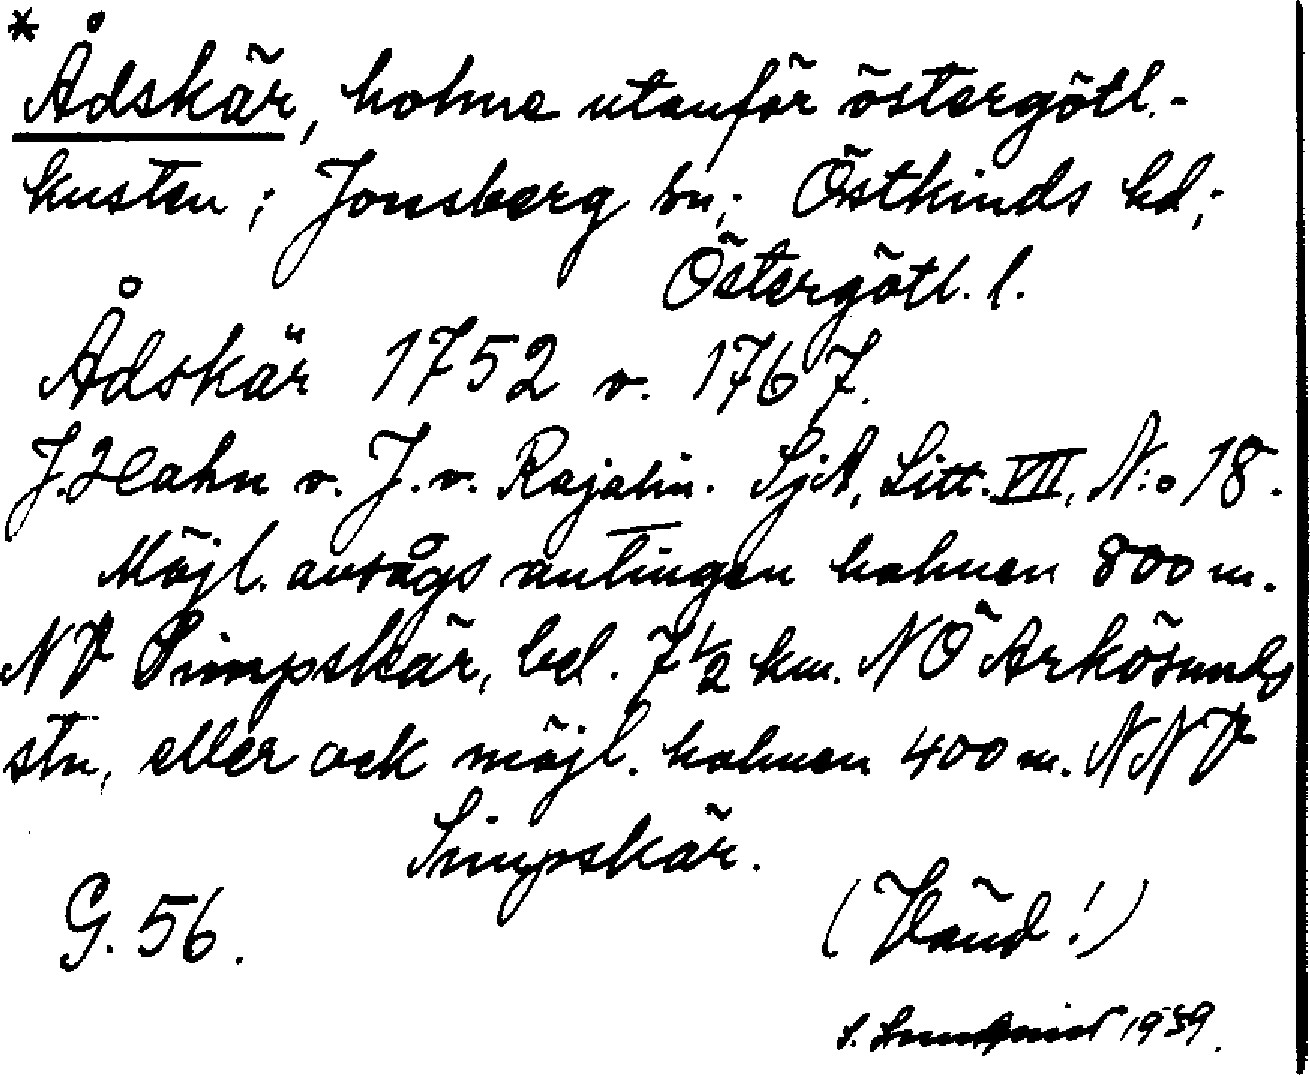 *
Ådskär, holme utanför östergötl.-
kusten; Jonsberg sn; Östkinds hd;
Östergötl. l.
Ådskär 1752 o. 1767.
J. Hahn o. J. v. Rajalin. SjA, Litt. VII, N:o 18.
Möjl. avsågs antingen holmen 800 m.
NV Limpskär, bel. 7 1/2 km. NO Arkösunds
stn, eller ock möjl. holmen 400 m. NNV
Limpskär.
G. 56.
(Vänd!)
S. Lundqvist 1939.